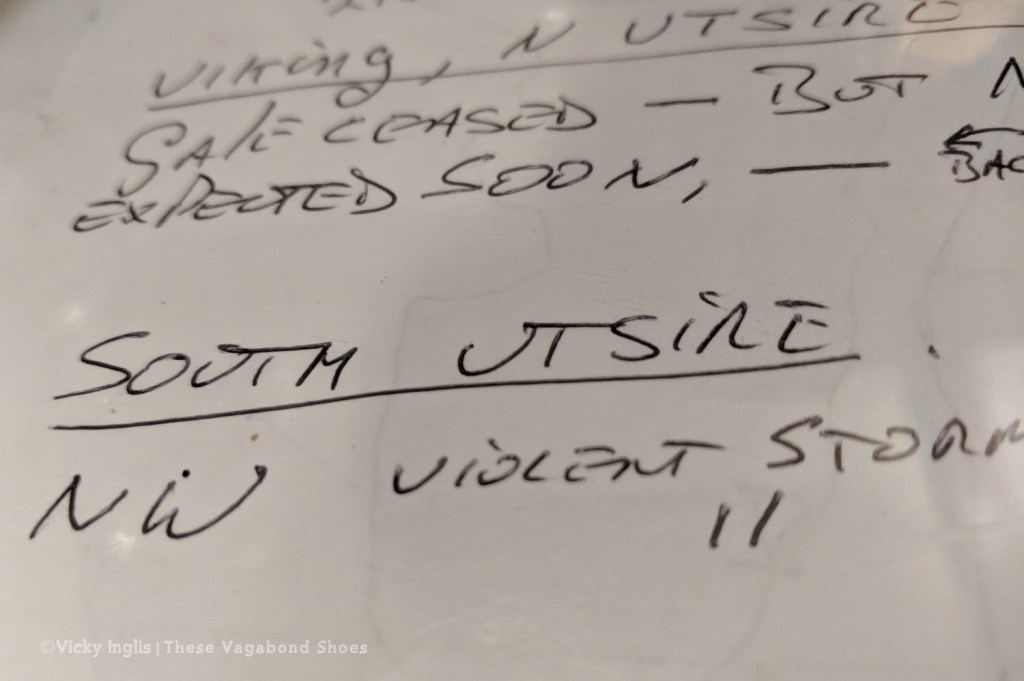 Viking, N UTSIRE
GAlE CEASED — BUT N
EXPECTED SOON, — BAC
SOUTH UTSIRE.
NW VIOLENT STORM
11
©Vicky Inglis | These Vagabond Shoes